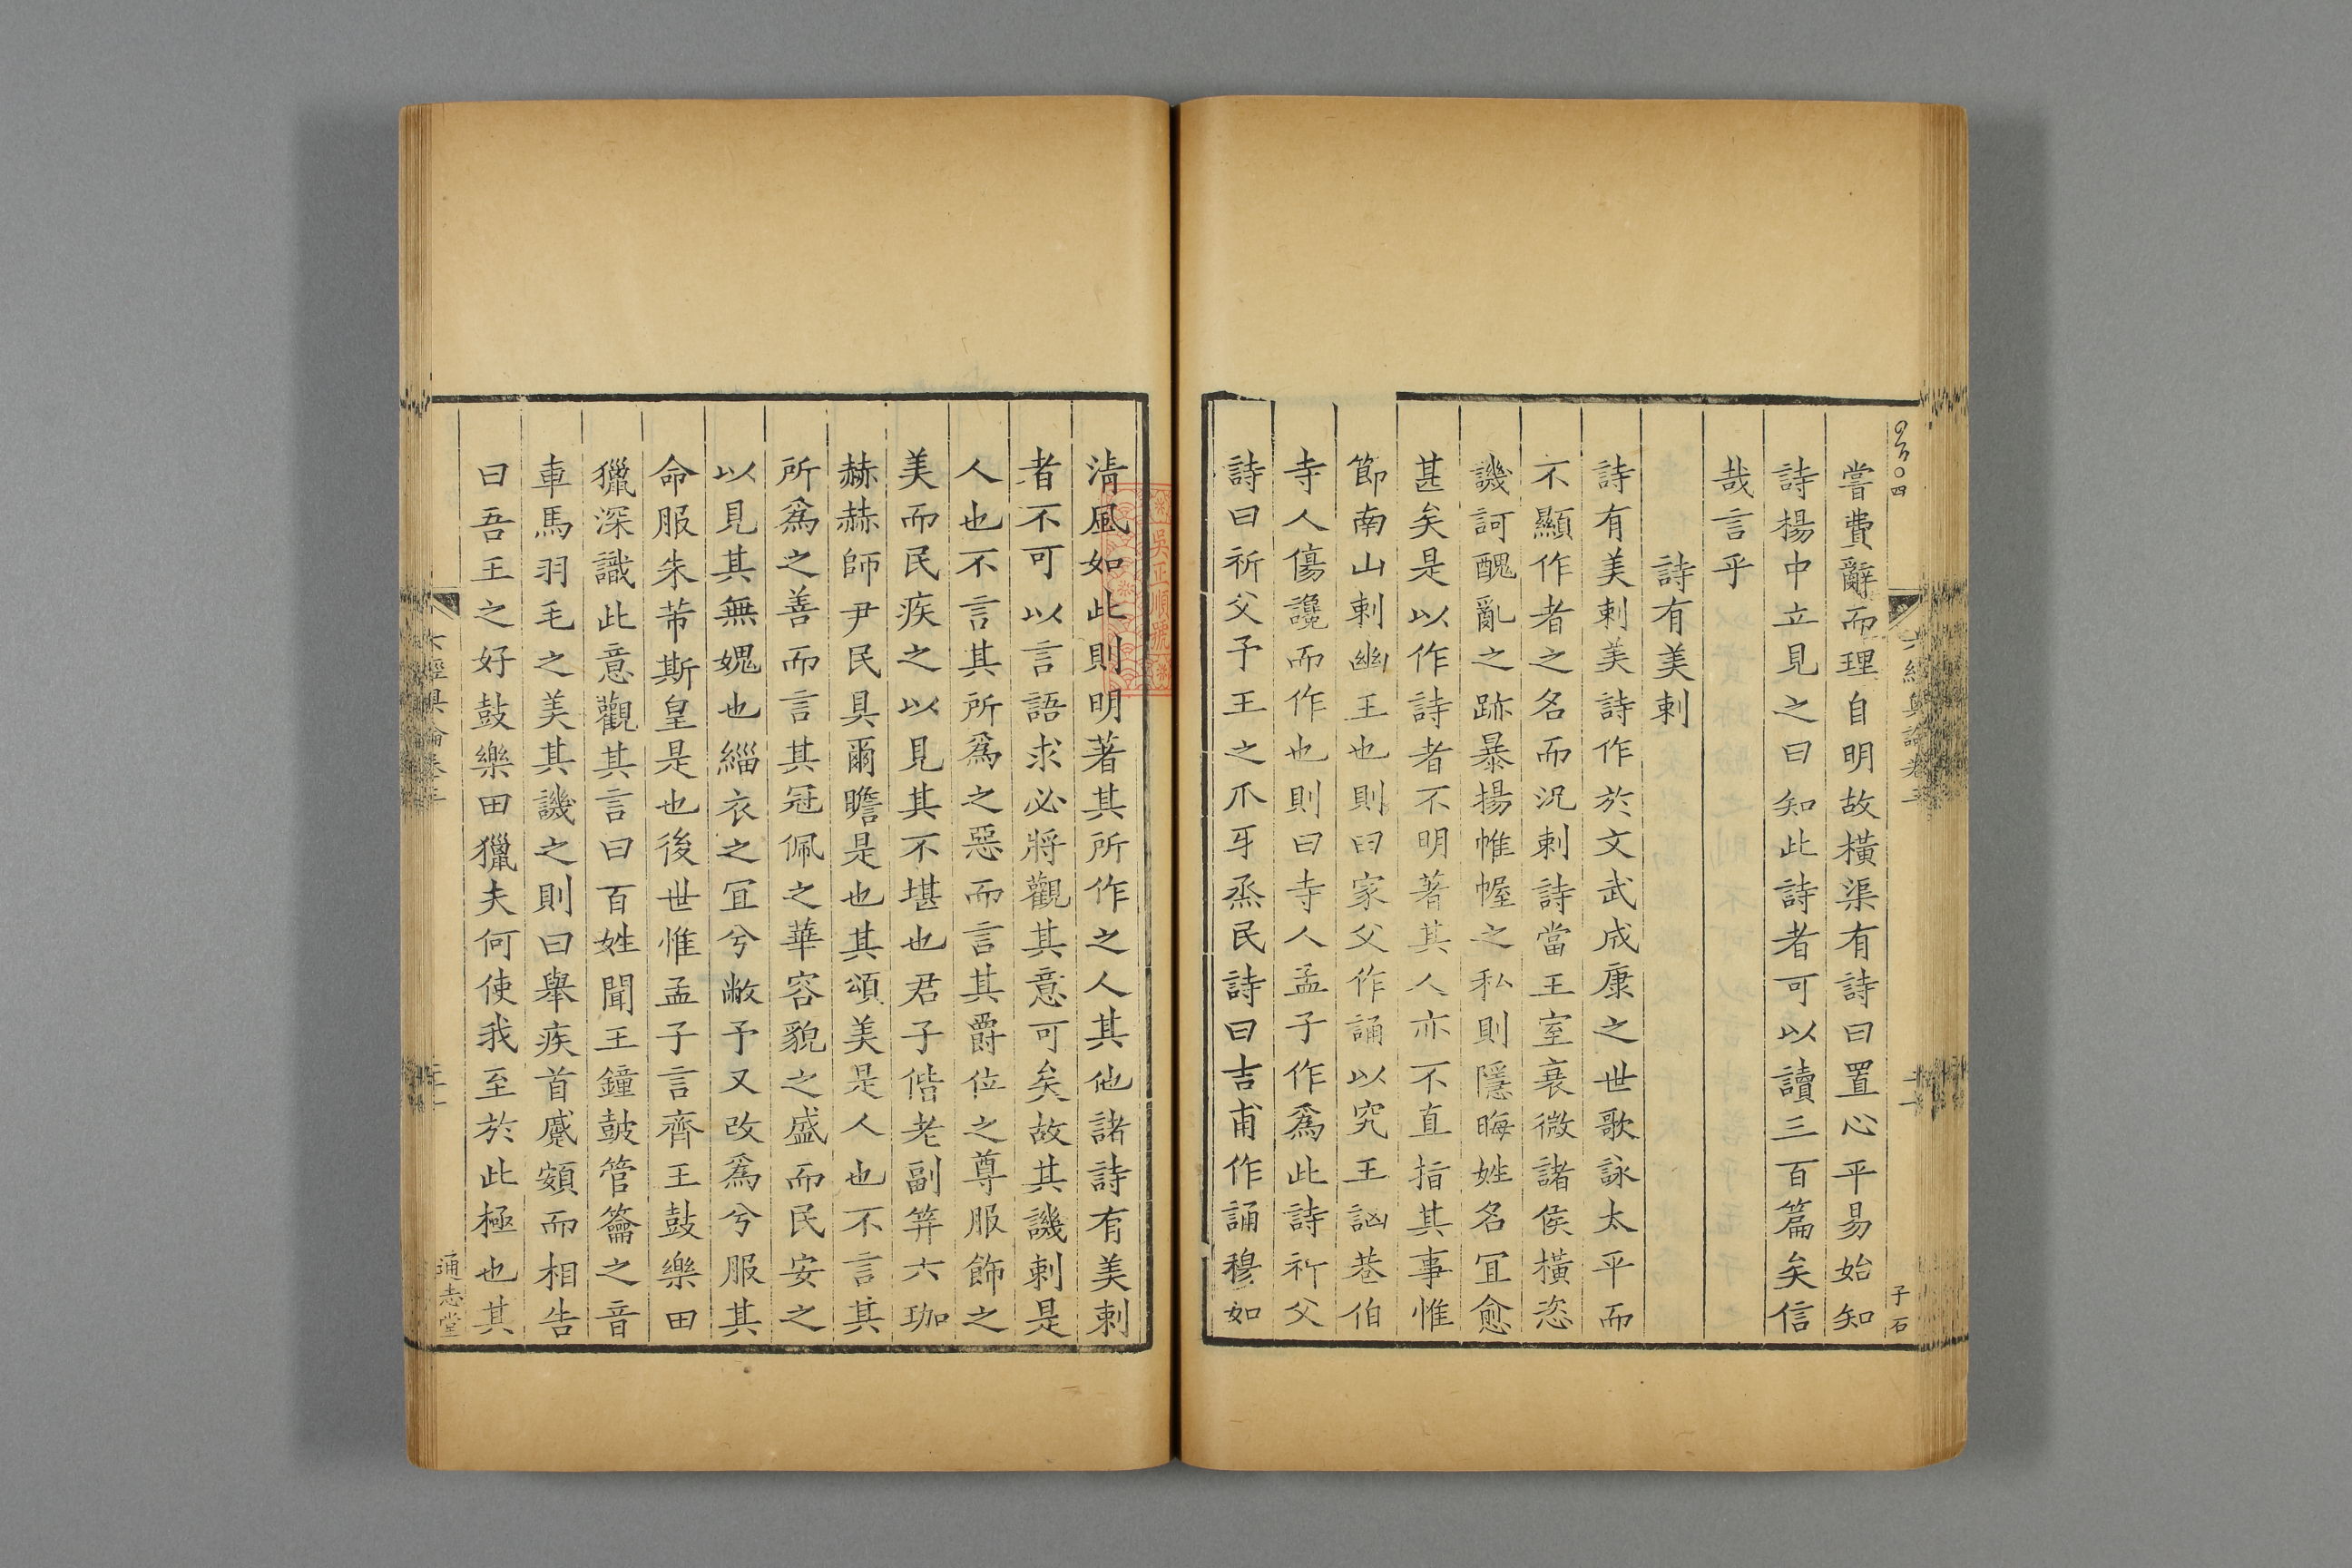 嘗費辭而理自明故橫渠有詩曰置心平易始知
詩楊中立見之曰知此詩者可以讀三百篇矣信
哉言乎
詩有美刺
詩有美刺美詩作於文武成康之世歌詠太平而
不顯作者之名而況刺詩當王室衰微諸侯橫恣
譏訶醜亂之跡暴揚帷幄之私則隱晦姓名冝愈
甚矣是以作詩者不明著其人亦不直指其事惟
節南山刺幽王也則曰家父作誦以究王訩巷伯
寺人傷讒而作也則曰寺人孟子作為此詩祈父
詩曰祈父予王之爪牙烝民詩曰吉甫作誦穆如
清風如此則明著其所作之人其他諸詩有美刺
者不可以言語求必將觀其意可矣故其譏刺是
人也不言其所為之惡而言其爵位之尊服飾之
美而民疾之以見其不堪也君子偕老副笄六珈
赫赫師尹民具爾瞻是也其頌美是人也不言其
所為之善而言其冠佩之華容貌之盛而民安之
以見其無媿也緇衣之冝兮敝予又改為兮服其
命服朱芾斯皇是也後世惟孟子言齊王鼓樂田
獵深識此意觀其言曰百姓聞王鐘鼓管籥之音
車馬羽毛之美其譏之則曰舉疾首蹙頞而相告
曰吾王之好鼓樂田獵夫何使我至於此極也其
六經奧論卷三
通志堂
子石